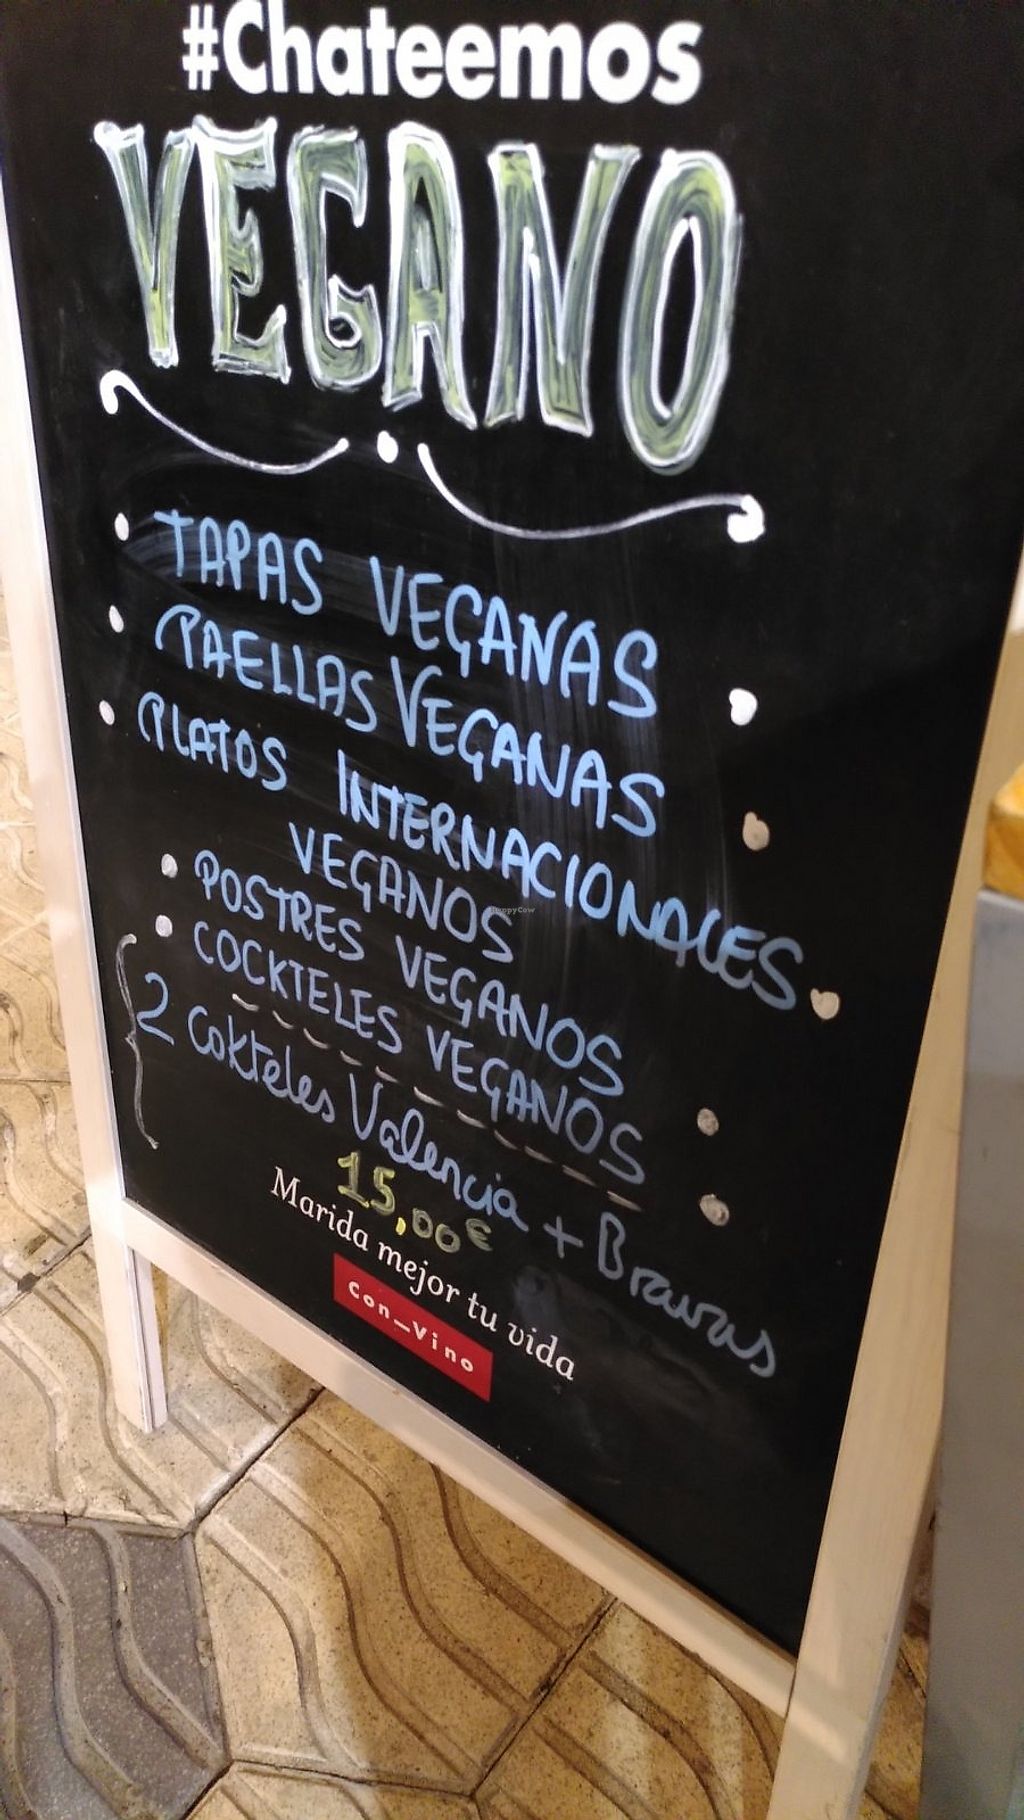 #Chateemos
VEGANO
TAPAS VEGANAS
PAELLAS VEGANAS
PLATOS INTERNACIONALES
VEGANOS
POSTRES VEGANOS
COCKTELES VEGANOS
2 Cokteles Valencia + Bravas
15,00€
Marida mejor tu vida
Con_Vino
HappyCow